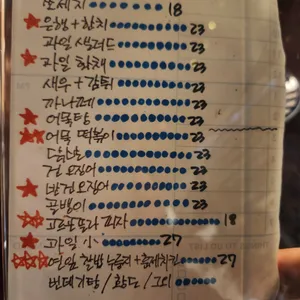 소세지 18
은행 + 한치 23
과일 샐러드 23
과일 화채 23
새우 + 감튀 23
까나페 23
어묵탕 23
어묵 떡볶이 23
닭한 23
건 오징어 23
반건 오징어 23
골뱅이 23
고르곤졸라 피자 18
과일 小 27
27
번데기탕 / 황도 /